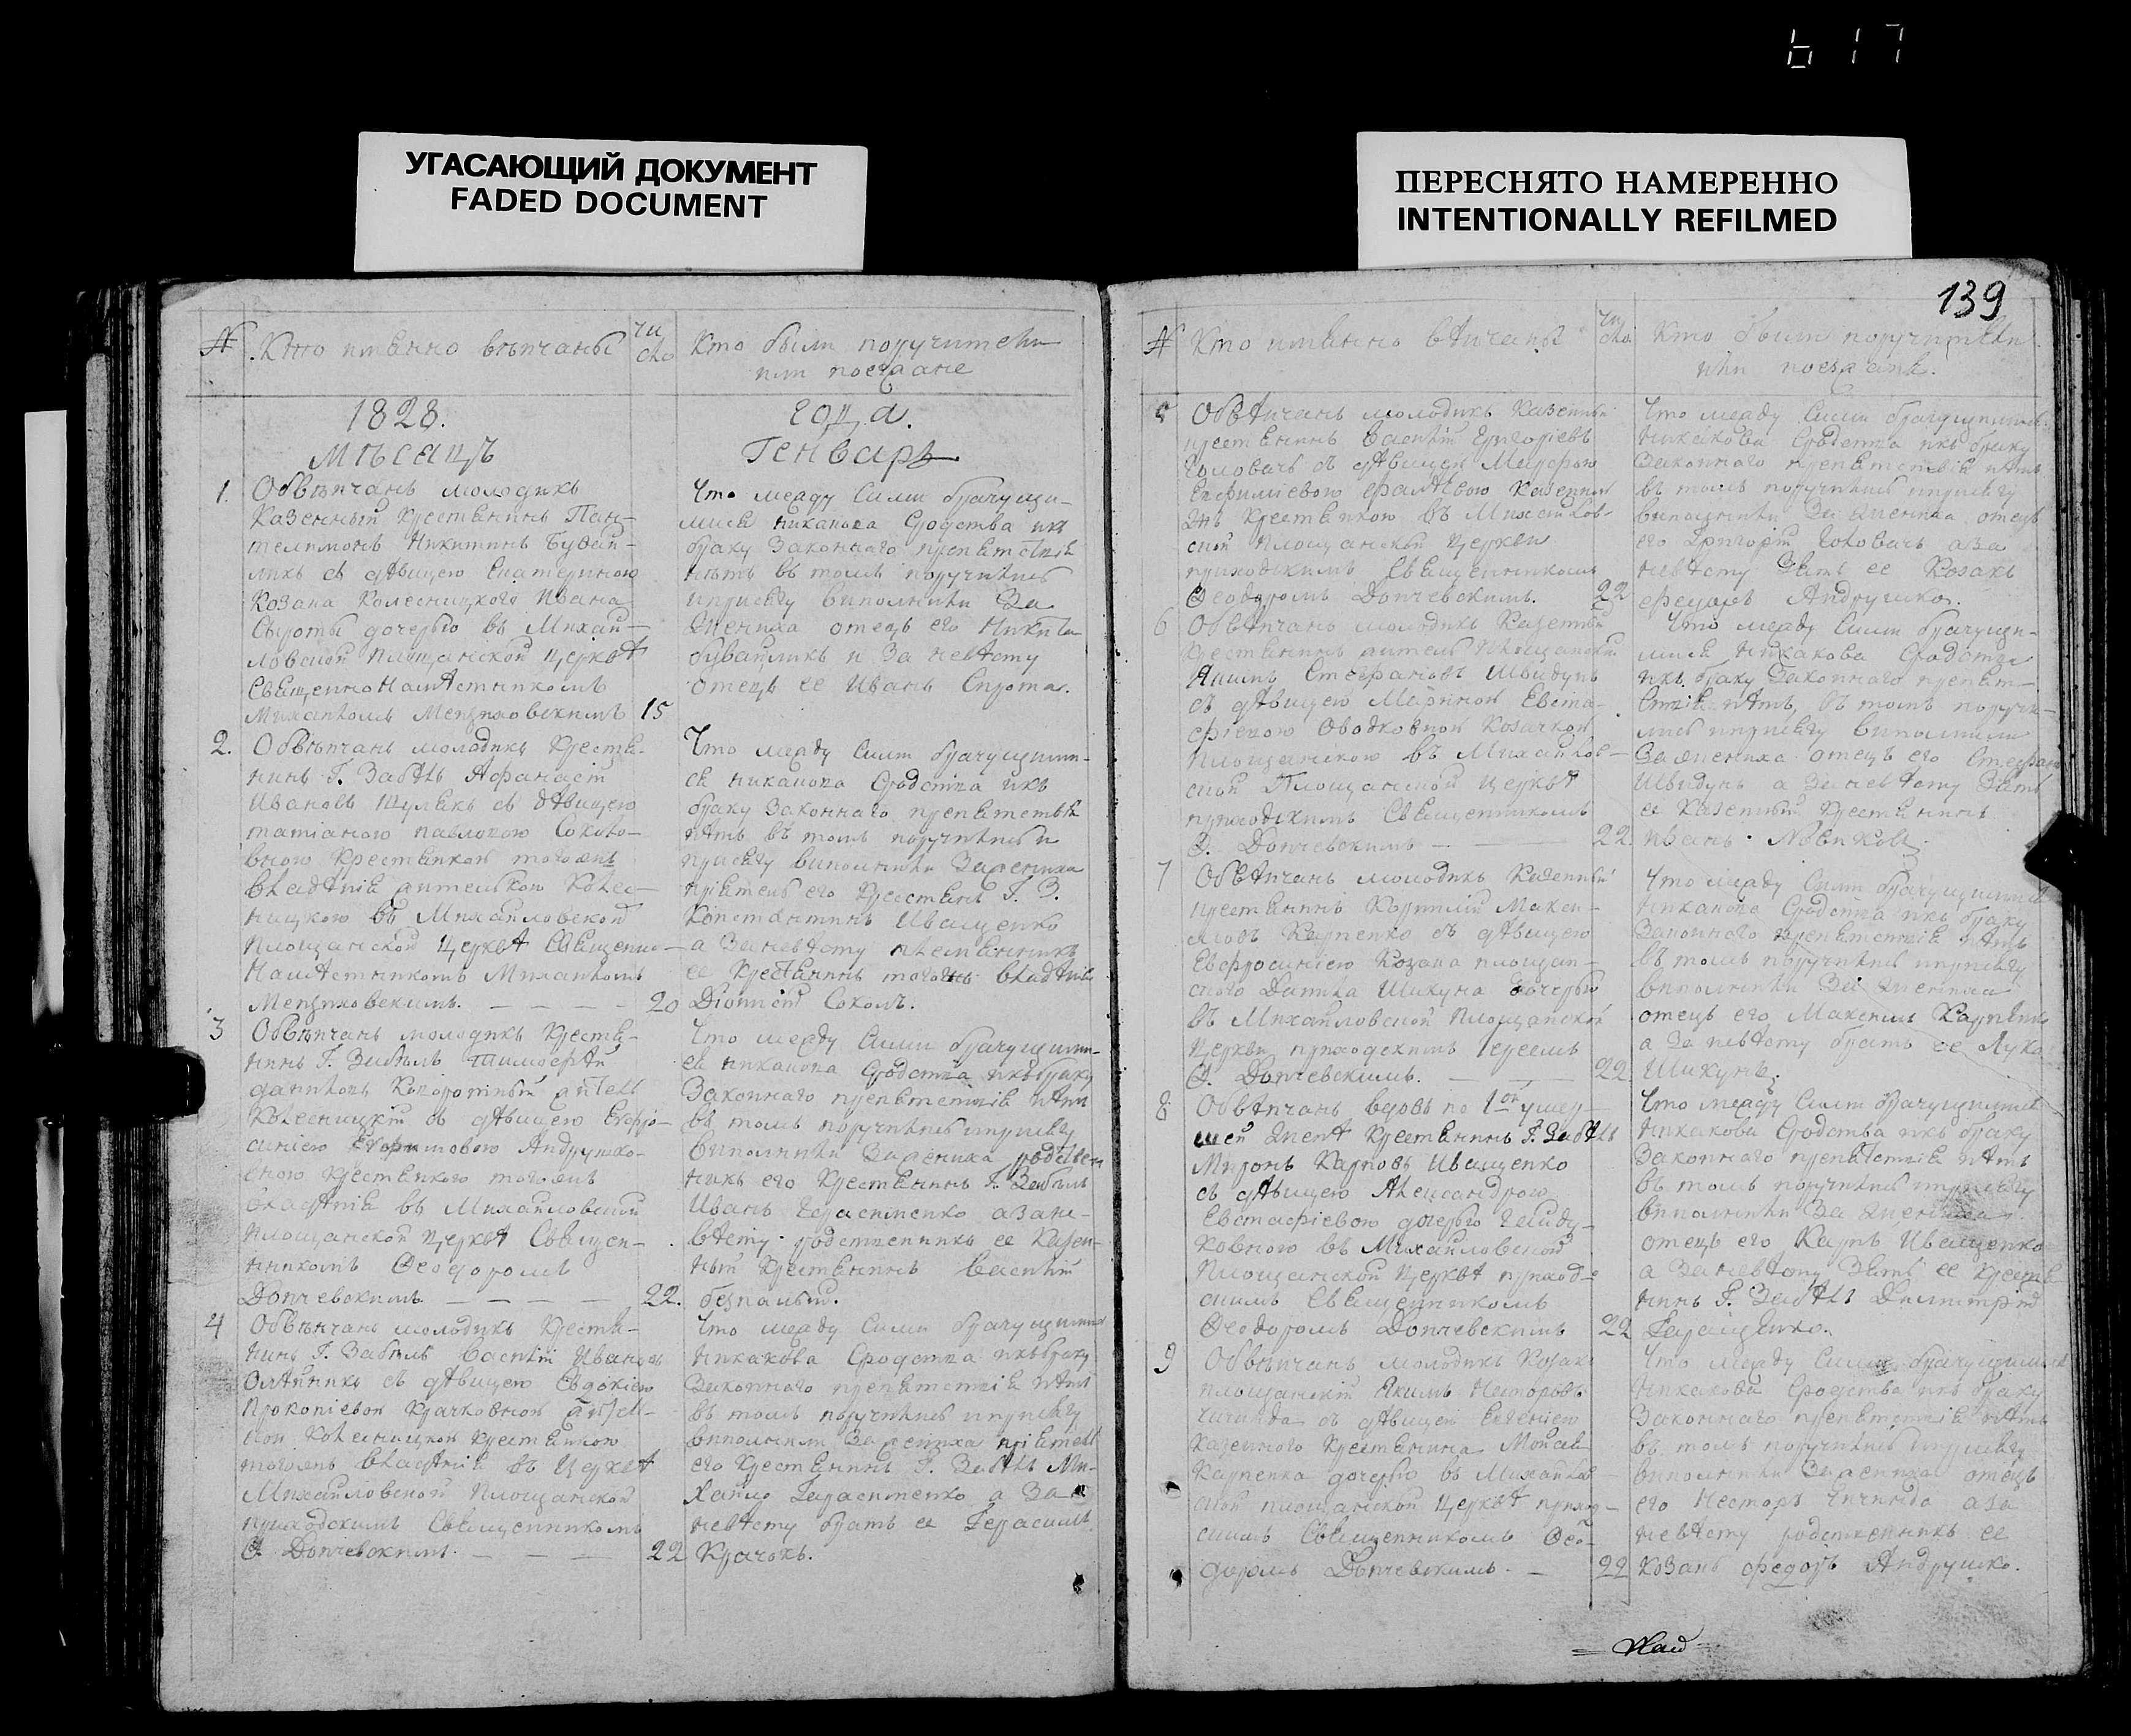 617
УГАСАЮЩИЙ ДОКУМЕНТ
FADED DOCUMENT
ПЕРЕСНЯТО НАМЕРЕННО
INTENTIONALLY REFILMED
139
№ Кто имянно вѣнчаны чи сло Кто были поручители
или поезжане
1828. года.
мѣсяцъ Генварь
1. Обвѣнчанъ молодикъ
Казенный крестянинъ Пан-
телимонъ Никитинъ
съ дѣвицею Екатериною
Козака Колесницкого Ивана
Сыроты дочерью въ Михай-
ловской Площанской церквѣ
Священнонамѣстникомъ
Михаиломъ 15
Что между Сими брачущи-
мися никакова Сродства икъ
браку Законнаго препятствія
нѣтъ въ томъ поручились
иприсягу выполнили За
жениха отецъ его Никита
и За невѣсту
отецъ ее Иванъ Сирота.
2. Обвѣнчанъ молодикъ Крестя-
нинъ Г. Забѣлъ Афанасій
Ивановъ съ дѣвицею
татіаною павловою Соколо-
вною Крестянкою тогожъ
владѣнія жителькою Колес-
ницкою въ Михайловской
Площанской Церквѣ Священно-
Намѣстникомъ Михаиломъ
20
Что между Сими брачущими-
ся никакова Сродства икъ
браку законнаго препятствія
нѣтъ въ томъ поручились и
присягу выполнили Зажениха
пріятель его Крестянъ Г. З.
Константинъ Иващенко
а Заневѣсту племянникъ
ее Крестянинъ тогожъ владѣнія
Діонисій Соколъ.
3 Обвѣнчанъ молодикъ Крестя-
нинъ Г. Забѣлъ тимофѣй
даниловъ житель
Колесницкій съ дѣвицею Ефро-
синіею Андрушко-
вною Крестянкою тогожъ
владѣнія въ Михайловской
Площанской Церквѣ Священ-
никомъ Ѳеодоромъ
Допчевскимъ 22.
Что между Сими брачущими-
ся никакова Сродства икъ браку
Законнаго препятствія нѣтъ
въ томъ поручились иприсягу
выполнили Зажениха родствен
никъ его Крестянинъ Г. Забѣлъ
Иванъ Герасименко азане-
вѣсту родственникъ ее Казен-
ный Крестянинъ Василій
безпалый.
4 Обвѣнчанъ молодикъ Крестя-
нинъ Г. Забѣлъ Василій Ивановъ
Олѣйникъ съ дѣвицею Евдокіею
Прокопіевою Крачковною жител-
кою Колесницкою Крестянкою
тогожъ владѣнія въ Церквѣ
Михайловской Площанской
приходскимъ Священникомъ
Ѳ. Допчевскимъ. 22
Что между Сими брачущимися
Никакова Сродства икъ браку
Законнаго препятствія нѣтъ
въ томъ поручились иприсягу
выполнили Зажениха пріятель
его Крестянинъ Г. Забѣлъ Ми-
хайло Герасименко а За
невѣсту братъ ее Герасимъ
Крачокъ.
№ Кто имянно вѣнчаны чи сло. Кто были поручители
или поезжане.
5 Обвѣнчанъ молодикъ Казенный
крестянинъ Василій Григоріевъ
Головачъ съ дѣвицею Марфою
Казенною
Крестянкою въ Михайлов-
ской Площанской Церкви
приходскимъ Священникомъ
Ѳеодоромъ Допчевскимъ. 22
Что между Сими брачущимися
никакова Сродства икъ браку
Законнаго препятствія нѣтъ
въ томъ поручились иприсягу
выполнили За жениха отецъ
его Григорій Головачъ аза
невѣсту Зять ее Козакъ
Андрушко.
6 Обвѣнчанъ молодикъ Казенный
Крестянинъ житель Площанскій
Якимъ Стефановъ Швидунъ
съ дѣвицею Мариною Евста-
фіевою Козачкою
Площанскою въ Михайлов-
ской Площанской церквѣ
приходскимъ Священникомъ
Ѳ. Допчевскимъ 22.
Что между Сими брачущи-
мися никакова Сродства
икъ браку Законнаго препят-
ствія нѣтъ, въ томъ поручи-
лись иприсягу выполнили
Зажениха отецъ его Стефанъ
Швидунъ а Заневѣсту Зять
ее Казенный Крестянинъ
Иванъ Новиковъ.
7 Обвѣнчанъ молодикъ Казенный
крестянинъ Корнилій Макси-
мовъ Карпенко съ дѣвицею
Евфросиніею Козака площан-
ского Данила Шикуна дочерью
въ Михайловской Площанской
Церкви приходскимъ Іереемъ
Ѳ. Допчевскимъ. 22.
Что между Сими брачущимися
никакова Сродства икъ браку
Законнаго препятствія нѣтъ
въ томъ поручились иприсягу
выполнили За жениха
отецъ его Максимъ Карпенко
а За невѣсту братъ ее Лука
Шикунъ.
8 Обвѣнчанъ вдовъ по 1ой умер-
шей женѣ Крестянинъ Г. Забѣлъ
Миронъ Карповъ Иващенко
съ дѣвицею Александрою
Евстафіевою дочерью
въ Михайловской
Площанской Церквѣ приход-
скимъ Священникомъ
Ѳеодоромъ Допчевскимъ 22
Что между Сими брачущимися
Никакова Сродства икъ браку
Законнаго препятствія нѣтъ
въ томъ поручились иприсягу
выполнили За жениха
отецъ его Карпъ Иващенко
а Заневѣсту Зять ее Крестя
нинъ Г. Забѣлъ Димитрій
9 Обвѣнчанъ молодикъ Козакъ
площанскій Якимъ Несторовъ
съ дѣвицею Евгеніею
Казенного Крестянина Мойсея
Карпенка дочерью въ Михайлов-
ской площанской Церквѣ приход-
скимъ Священникомъ Ѳео-
доромъ Допчевскимъ. 22
Что между Сими брачущимися
Никакова Сродства икъ браку
Законнаго препятствія нѣтъ
въ томъ поручились иприсягу
выполнили Зажениха отецъ
его Несторъ аза
невѣсту родственникъ ее
Козакъ Федоръ Андрушко.